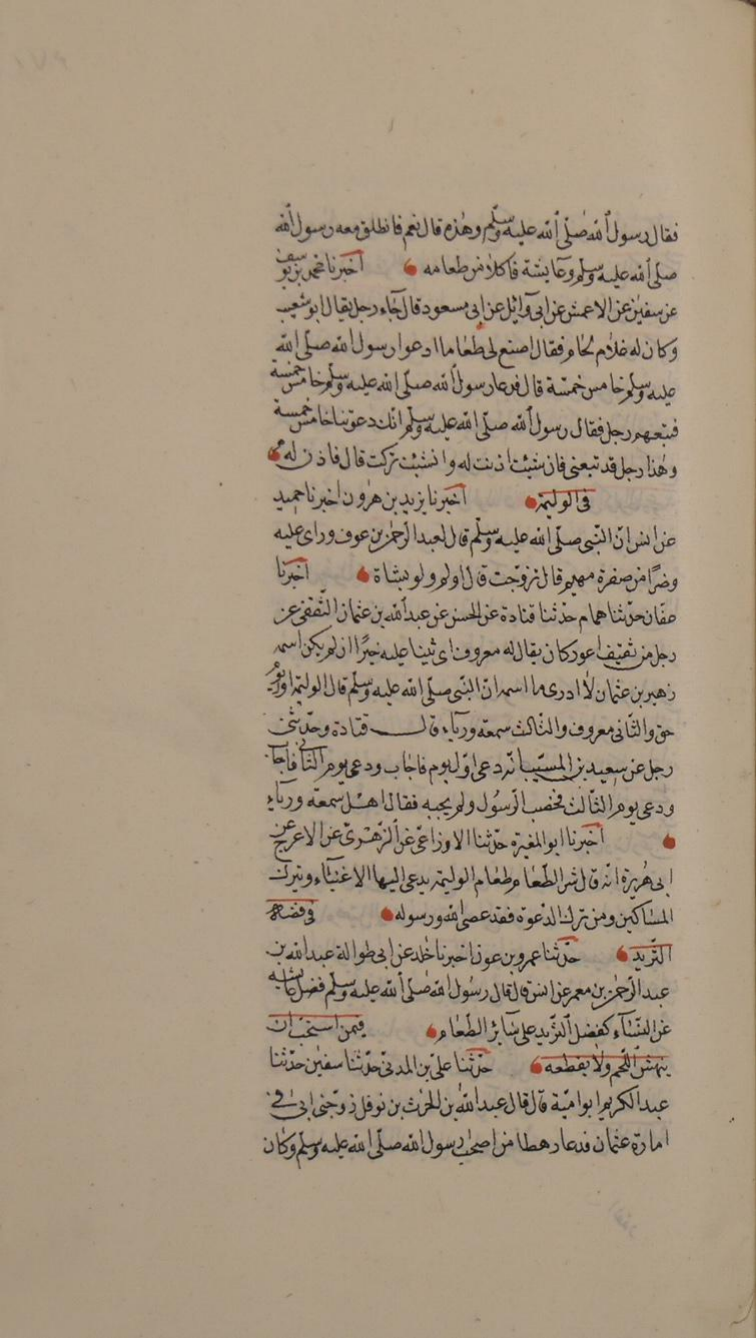 فقال رسول الله صلّى الله عليه وسلّم وهذه قال نعم فانطلق معه رسول الله
صلى الله عليه وسلم وعايشة فاكلا من طعامه اخبرنا محمد بن يوسف
عن سفين عن الاعمش عن ابى وآئل عن ابى مسعود قال جآء رجل يقال ابو شعيب
وكان له غلام لحام فقال اصنع لى طعاما ادعوا رسول الله صلى الله
عليه وسلم خامس خمسة قال فدعا رسول الله صلى الله عليه وسلم خامس خمسة
فتبعهم رجل فقال رسول الله صلى الله عليه وسلم انك دعوتنا خامس خمسة
وهذا رجل قد تبعنى فان شئت اذنت له وان شئت تركت قال فاذن له
فى الوليمة اخبرنا يزيد بن هرون اخبرنا حميد
عن انس انّ النّبى صلى الله عليه وسلّم قال لعبد الرحمن بن عوف وراى عليه
وضرًا من صفرة مهيم قال تزوّجت قال اولم ولو بشاة اخبرنا
عفّان حدّثنا همام حدثنا قتادة عن الحسن عن عبد الله بن عثمان الثّقفى عن
رجل من ثقيف اعور كان يقال له معروف اى ثينا عليه خيرًا ان لم يكن اسمه
زهير بن عثمان لا ادرى ما اسمه انّ النبى صلى الله عليه وسلّم قال الوليمة اوّل يوم
حق والثّانى معروف والثّالث سمعة وريآء قال قتادة وحدثنى
رجل عن سعيد بن المسيّب انّه دعى اوّل يوم فاجاب ودعى يوم الثّانى فاجاب
ودعى يوم الثّالث فحصب الرّسول ولم يجبه فقال اهل سمعة وريآء
اخبرنا ابو المغيرة حدّثنا الاوزاعى عن الزّهرىّ عن الاعرج عن
ابى هريرة انّه قال شر الطّعام طعام الوليمة يدعى اليها الاغنيآء ويترك
المساكين ومن ترك الدّعوة فقد عصى الله ورسوله فى فضل
الثّريد حدّثنا عمرو بن عون اخبرنا خلد عن ابى طوالة عبد الله بن
عبد الرّحمن بن معمر عن انس قال قال رسول الله صلى الله عليه وسلّم فضل عايشة
عن النّسآء كفضل الثّريد على سآئر الطّعام فيمن استحبّ ان
ينهش اللّحم ولا يقطعه حدّثنا علىّ بن المدنى حدّثنا سفين حدّثنا
عبد الكريم ابو اميّة قال قال عبد الله بن الحرث بن نوفل زوّجنى ابى فى
امارة عثمان فدعا رهطا من اصحاب رسول الله صلّى الله عليه وسلّم وكان